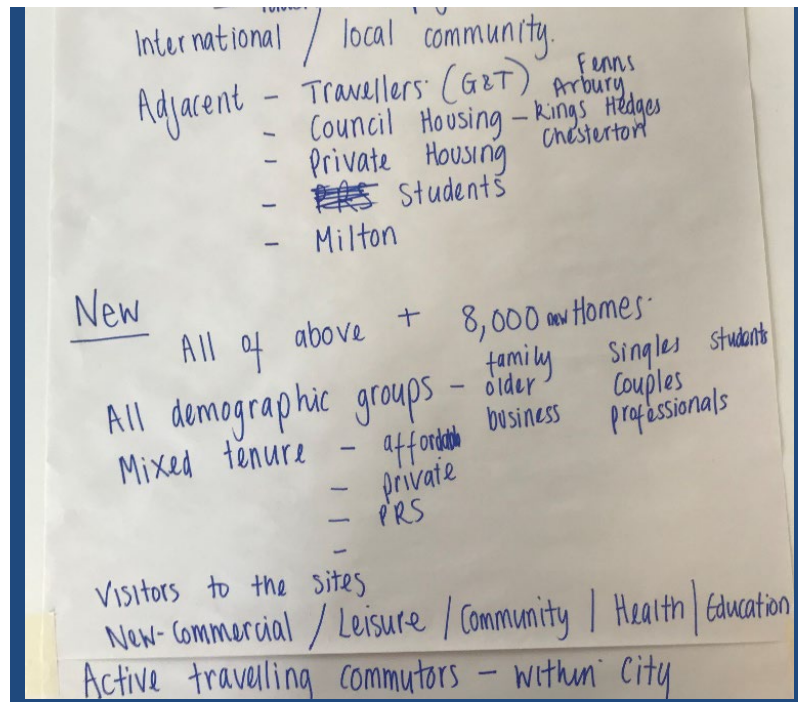 International / local community.
Adjacent - Travellers (G&T) Fenns
Arbury
- Council Housing - Kings Hedges
Chesterton
- Private Housing
- PRS Students
- Milton
New
All of above + 8,000 new Homes
All demographic groups - family Singles Students
older Couples
business professionals
Mixed tenure - affordable
- private
- PRS
-
Visitors to the sites
New-Commercial / Leisure / Community | Health | Education
Active travelling commutors - within City